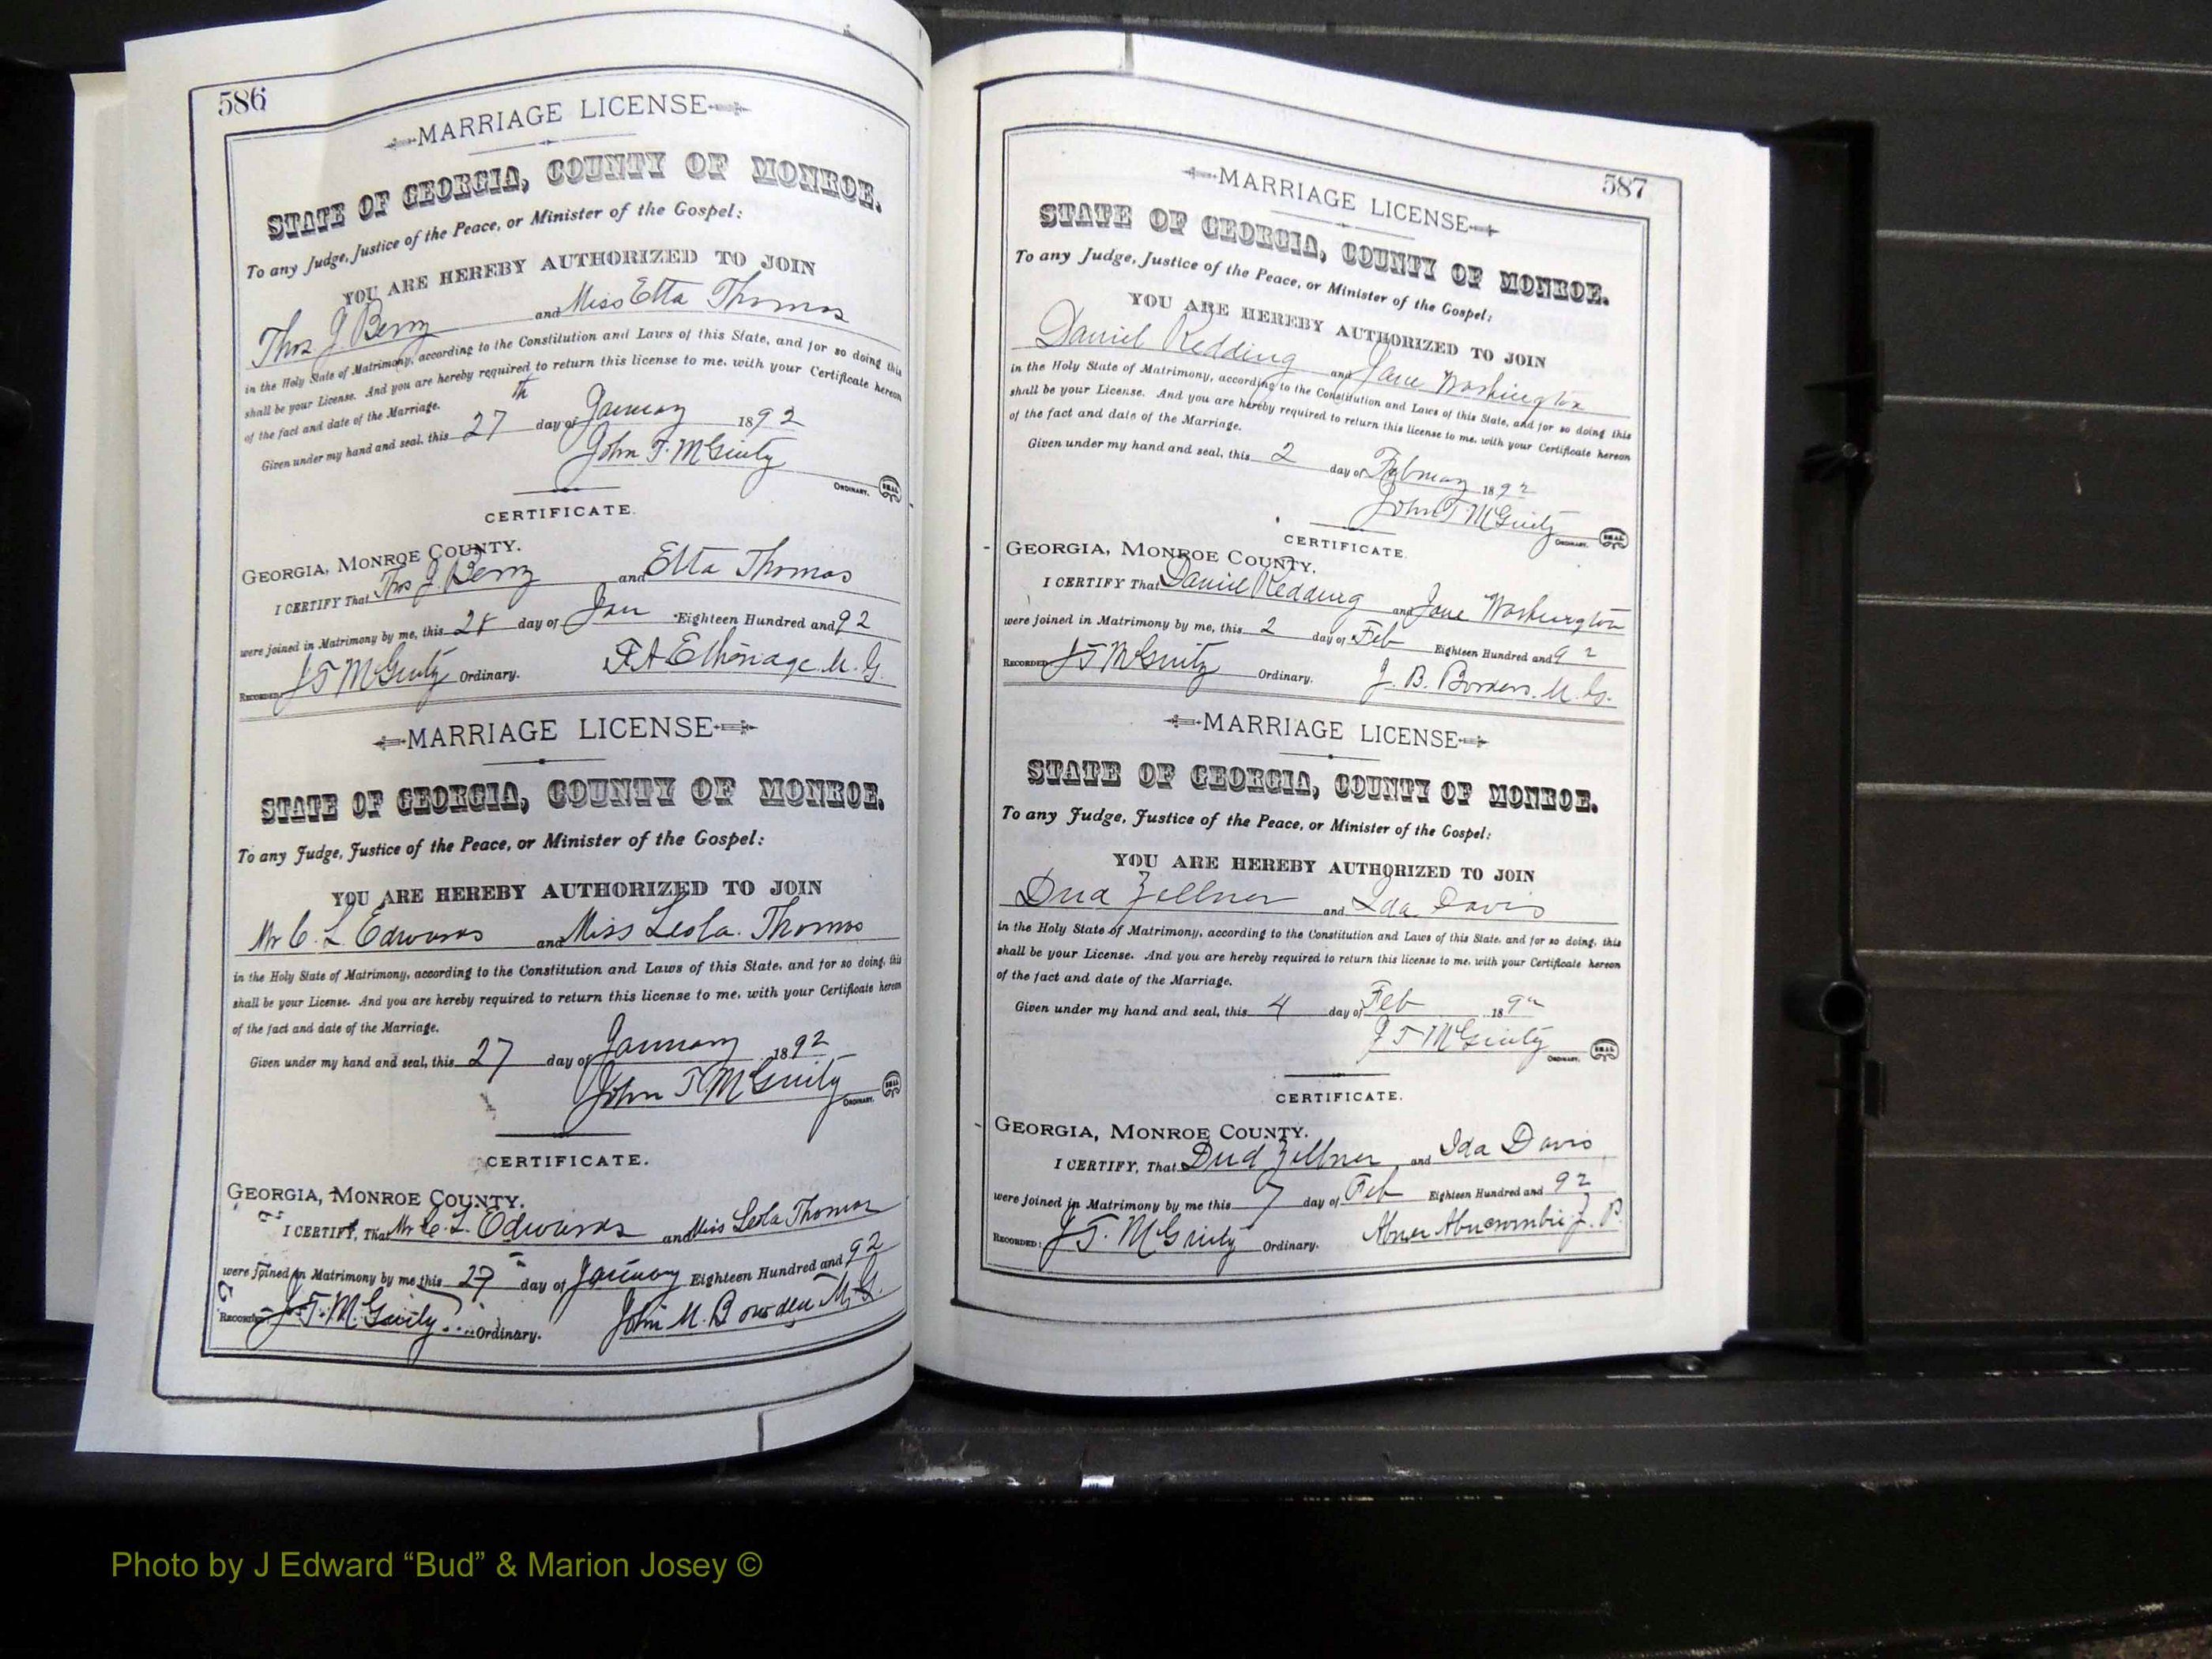 586
MARRIAGE LICENSE
STATE OF GEORGIA, COUNTY OF MONROE.
To any Judge, Justice of the Peace, or Minister of the Gospel:
YOU ARE HEREBY AUTHORIZED TO JOIN
Thos J. Berry and Miss Etta Thomas
in the Holy State of Matrimony, according to the Constitution and Laws of this State, and for so doing this
shall be your License. And you are hereby required to return this license to me, with your Certificate hereon
of the fact and date of the Marriage.
Given under my hand and seal, this 27th day of January 1892
John T. McGinty
ORDINARY. SEAL
CERTIFICATE.
GEORGIA, MONROE COUNTY.
I CERTIFY That Thos J. Berry and Etta Thomas
were joined in Matrimony by me, this 28 day of Jan Eighteen Hundred and 92
RECORDED: J T McGinty Ordinary. M. G.
MARRIAGE LICENSE
STATE OF GEORGIA, COUNTY OF MONROE.
To any Judge, Justice of the Peace, or Minister of the Gospel:
YOU ARE HEREBY AUTHORIZED TO JOIN
Mr C. L Edwards and Miss Leola Thomas
in the Holy State of Matrimony, according to the Constitution and Laws of this State, and for so doing, this
shall be your License. And you are hereby required to return this license to me, with your Certificate hereon
of the fact and date of the Marriage.
Given under my hand and seal, this 27 day of January 1892
John T. McGinty
ORDINARY. SEAL
CERTIFICATE.
GEORGIA, MONROE COUNTY.
I CERTIFY, That Mr C. L. Edwards and Miss Leola Thomas
were joined in Matrimony by me this 27 day of January Eighteen Hundred and 92
RECORDED: J. T. McGinty Ordinary. John M. Bowden M. G.
587
MARRIAGE LICENSE
STATE OF GEORGIA, COUNTY OF MONROE.
To any Judge, Justice of the Peace, or Minister of the Gospel:
YOU ARE HEREBY AUTHORIZED TO JOIN
Daniel Redding and Jane Washington
in the Holy State of Matrimony, according to the Constitution and Laws of this State, and for so doing this
shall be your License. And you are hereby required to return this license to me, with your Certificate hereon
of the fact and date of the Marriage.
Given under my hand and seal, this 2 day of February 1892
John T. McGinty
ORDINARY. SEAL
CERTIFICATE.
GEORGIA, MONROE COUNTY.
I CERTIFY That Daniel Redding and Jane Washington
were joined in Matrimony by me, this 2 day of Feb Eighteen Hundred and 92
RECORDED: J T McGinty Ordinary. J. B. Borders. M. G.
MARRIAGE LICENSE
STATE OF GEORGIA, COUNTY OF MONROE.
To any Judge, Justice of the Peace, or Minister of the Gospel:
YOU ARE HEREBY AUTHORIZED TO JOIN
Dud Zellner and Ida Davis
in the Holy State of Matrimony, according to the Constitution and Laws of this State, and for so doing, this
shall be your License. And you are hereby required to return this license to me, with your Certificate hereon
of the fact and date of the Marriage.
Given under my hand and seal, this 4 day of Feb 1892
J T McGinty
ORDINARY. SEAL
CERTIFICATE.
GEORGIA, MONROE COUNTY.
I CERTIFY, That Dud Zellner and Ida Davis
were joined in Matrimony by me this 7 day of Feb Eighteen Hundred and 92
RECORDED: J. T. McGinty Ordinary. Abner Abercrombie J. P.
Photo by J Edward “Bud” & Marion Josey ©